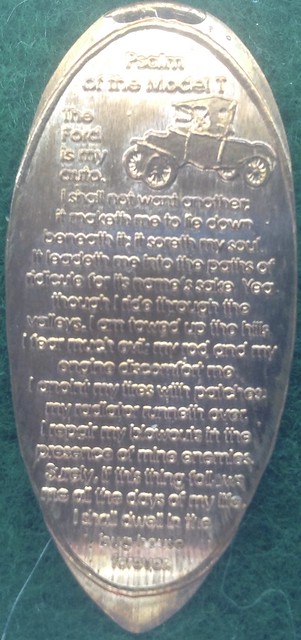 Psalm
of the Model T
The
Ford
is my
auto.
I shall not want another.
It maketh me to lie down
beneath it; it soreth my soul.
It leadeth me into the paths of
ridicule for its name's sake. Yea,
though I ride through the
valleys, I am towed up the hills.
I fear much evil; my rod and my
engine discomfort me.
I anoint my tires with patches;
my radiator runneth over.
I repair my blowouts in the
presence of mine enemies.
Surely, if this thing follows
me all the days of my life,
I shall dwell in the
bug house
forever.